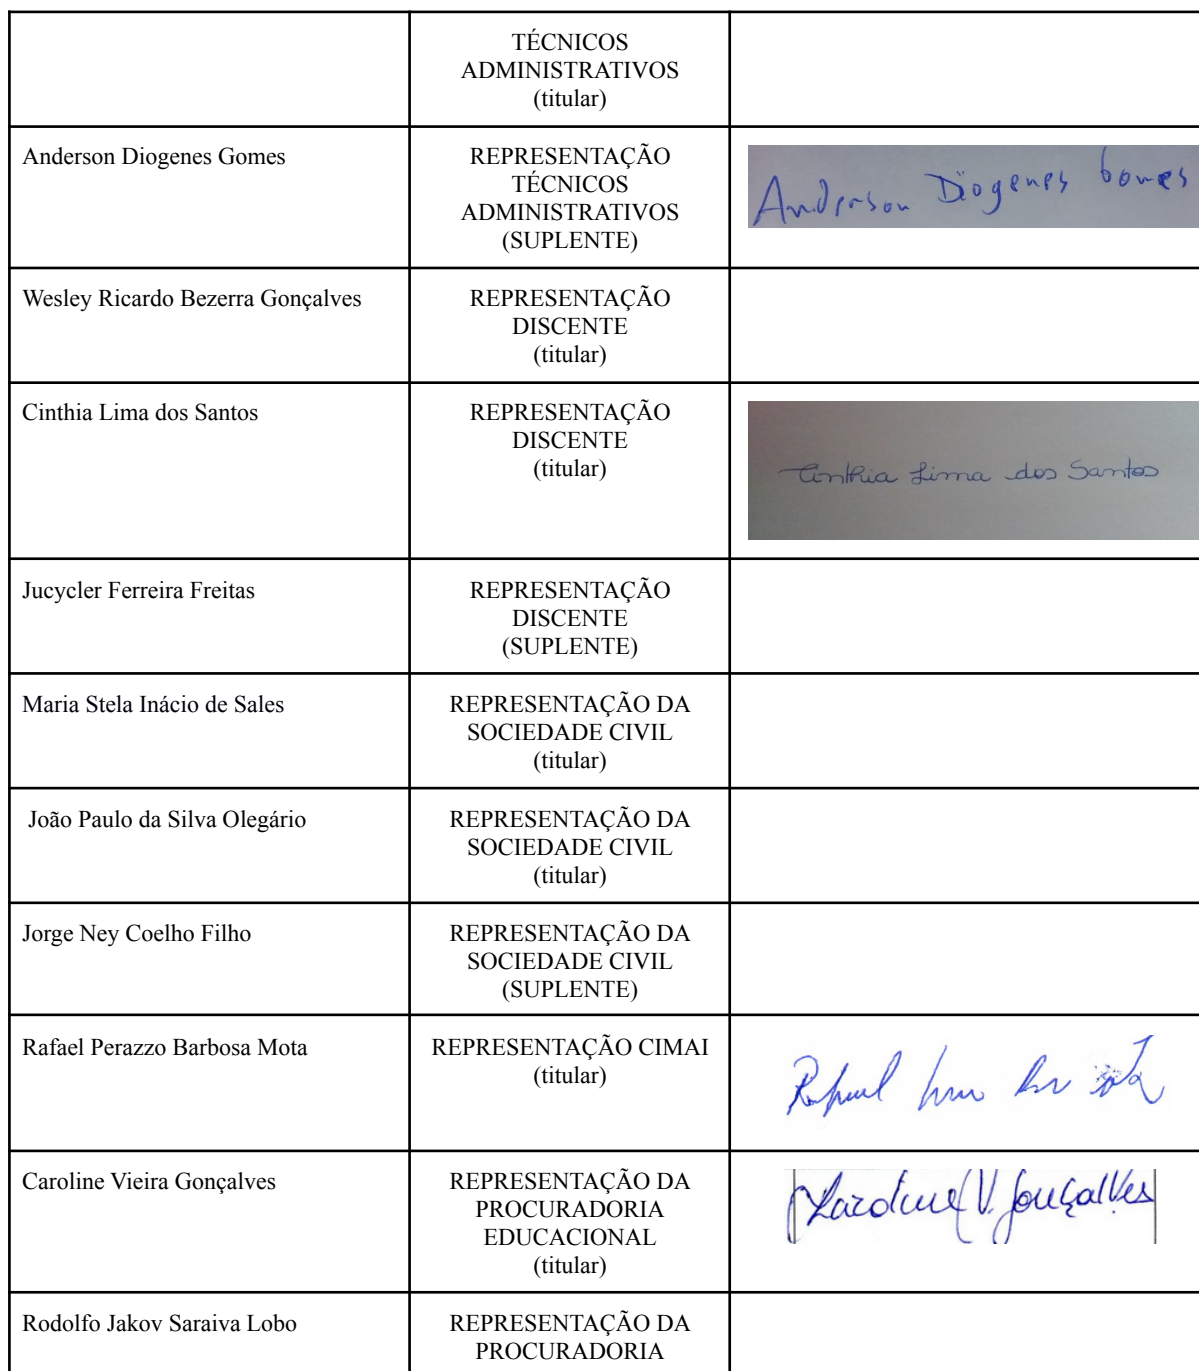 TÉCNICOS
ADMINISTRATIVOS
(titular)
Anderson Diogenes Gomes
REPRESENTAÇÃO
TÉCNICOS
ADMINISTRATIVOS
(SUPLENTE)
Anderson Diogenes Gomes
Wesley Ricardo Bezerra Gonçalves
REPRESENTAÇÃO
DISCENTE
(titular)
Cinthia Lima dos Santos
REPRESENTAÇÃO
DISCENTE
(titular)
Cinthia Lima dos Santos
Jucycler Ferreira Freitas
REPRESENTAÇÃO
DISCENTE
(SUPLENTE)
Maria Stela Inácio de Sales
REPRESENTAÇÃO DA
SOCIEDADE CIVIL
(titular)
João Paulo da Silva Olegário
REPRESENTAÇÃO DA
SOCIEDADE CIVIL
(titular)
Jorge Ney Coelho Filho
REPRESENTAÇÃO DA
SOCIEDADE CIVIL
(SUPLENTE)
Rafael Perazzo Barbosa Mota
REPRESENTAÇÃO CIMAI
(titular)
Rafael
Caroline Vieira Gonçalves
REPRESENTAÇÃO DA
PROCURADORIA
EDUCACIONAL
(titular)
Caroline V. Gonçalves
Rodolfo Jakov Saraiva Lobo
REPRESENTAÇÃO DA
PROCURADORIA